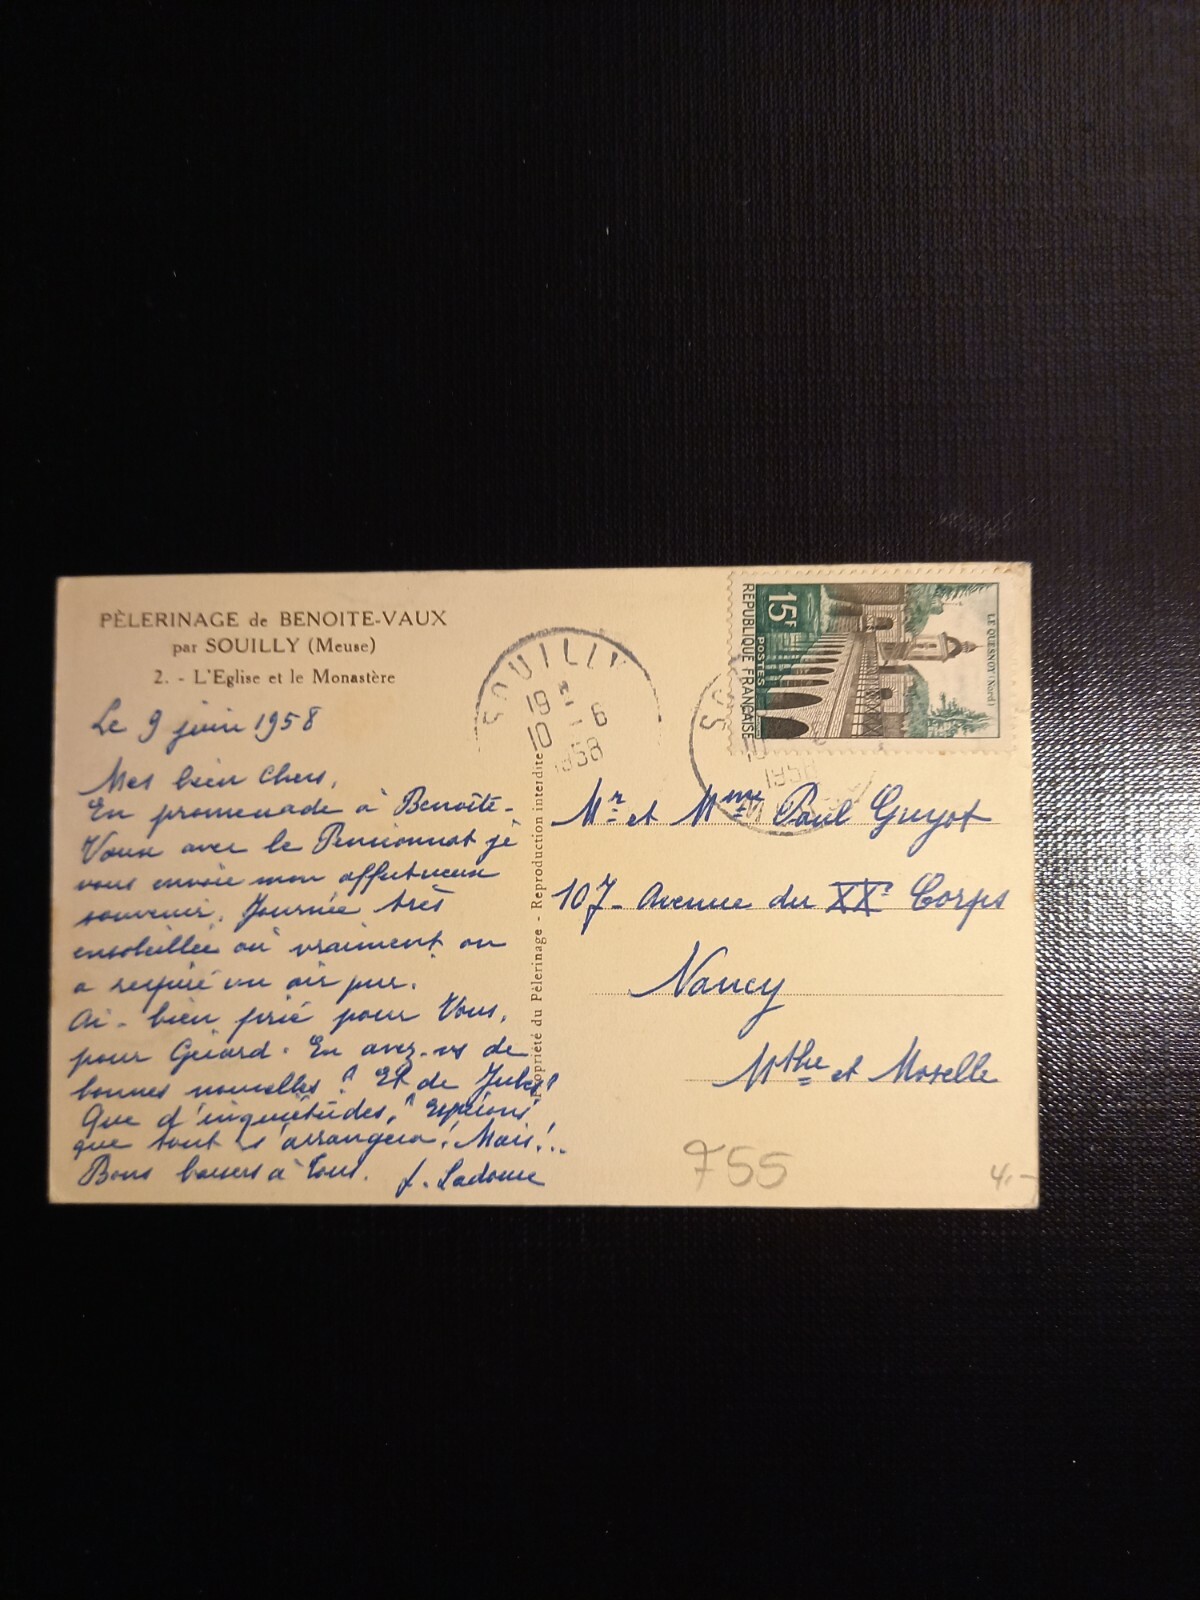 PÈLERINAGE de BENOITE-VAUX
par SOUILLY (Meuse)
2. - L'Eglise et le Monastère
Le 9 juin 1958
Mes bien Chers,
En promenade à Benoîte-
Vaux avec le Pensionnat je
vous envoie mon affectueux
souvenir. Journée très
ensoleillée où vraiment on
a respiré un air pur.
Ai bien prié pour Vous,
pour Gérard. En avez-vs de
bonnes nouvelles? Et de Jules?
Que d'inquiétudes! Espérons
que tout s'arrangera! Mais!..
Bons baisers à Tous. J. Ladoue
Propriété du Pèlerinage - Reproduction interdite
SOUILLY
19
10 - 6
1958
15F
POSTES
REPUBLIQUE FRANÇAISE
LE QUESNOY (Nord)
Mr et Mme Paul Guyot
107 - Avenue du XXe Corps
Nancy
Mthe et Moselle
755
4,-